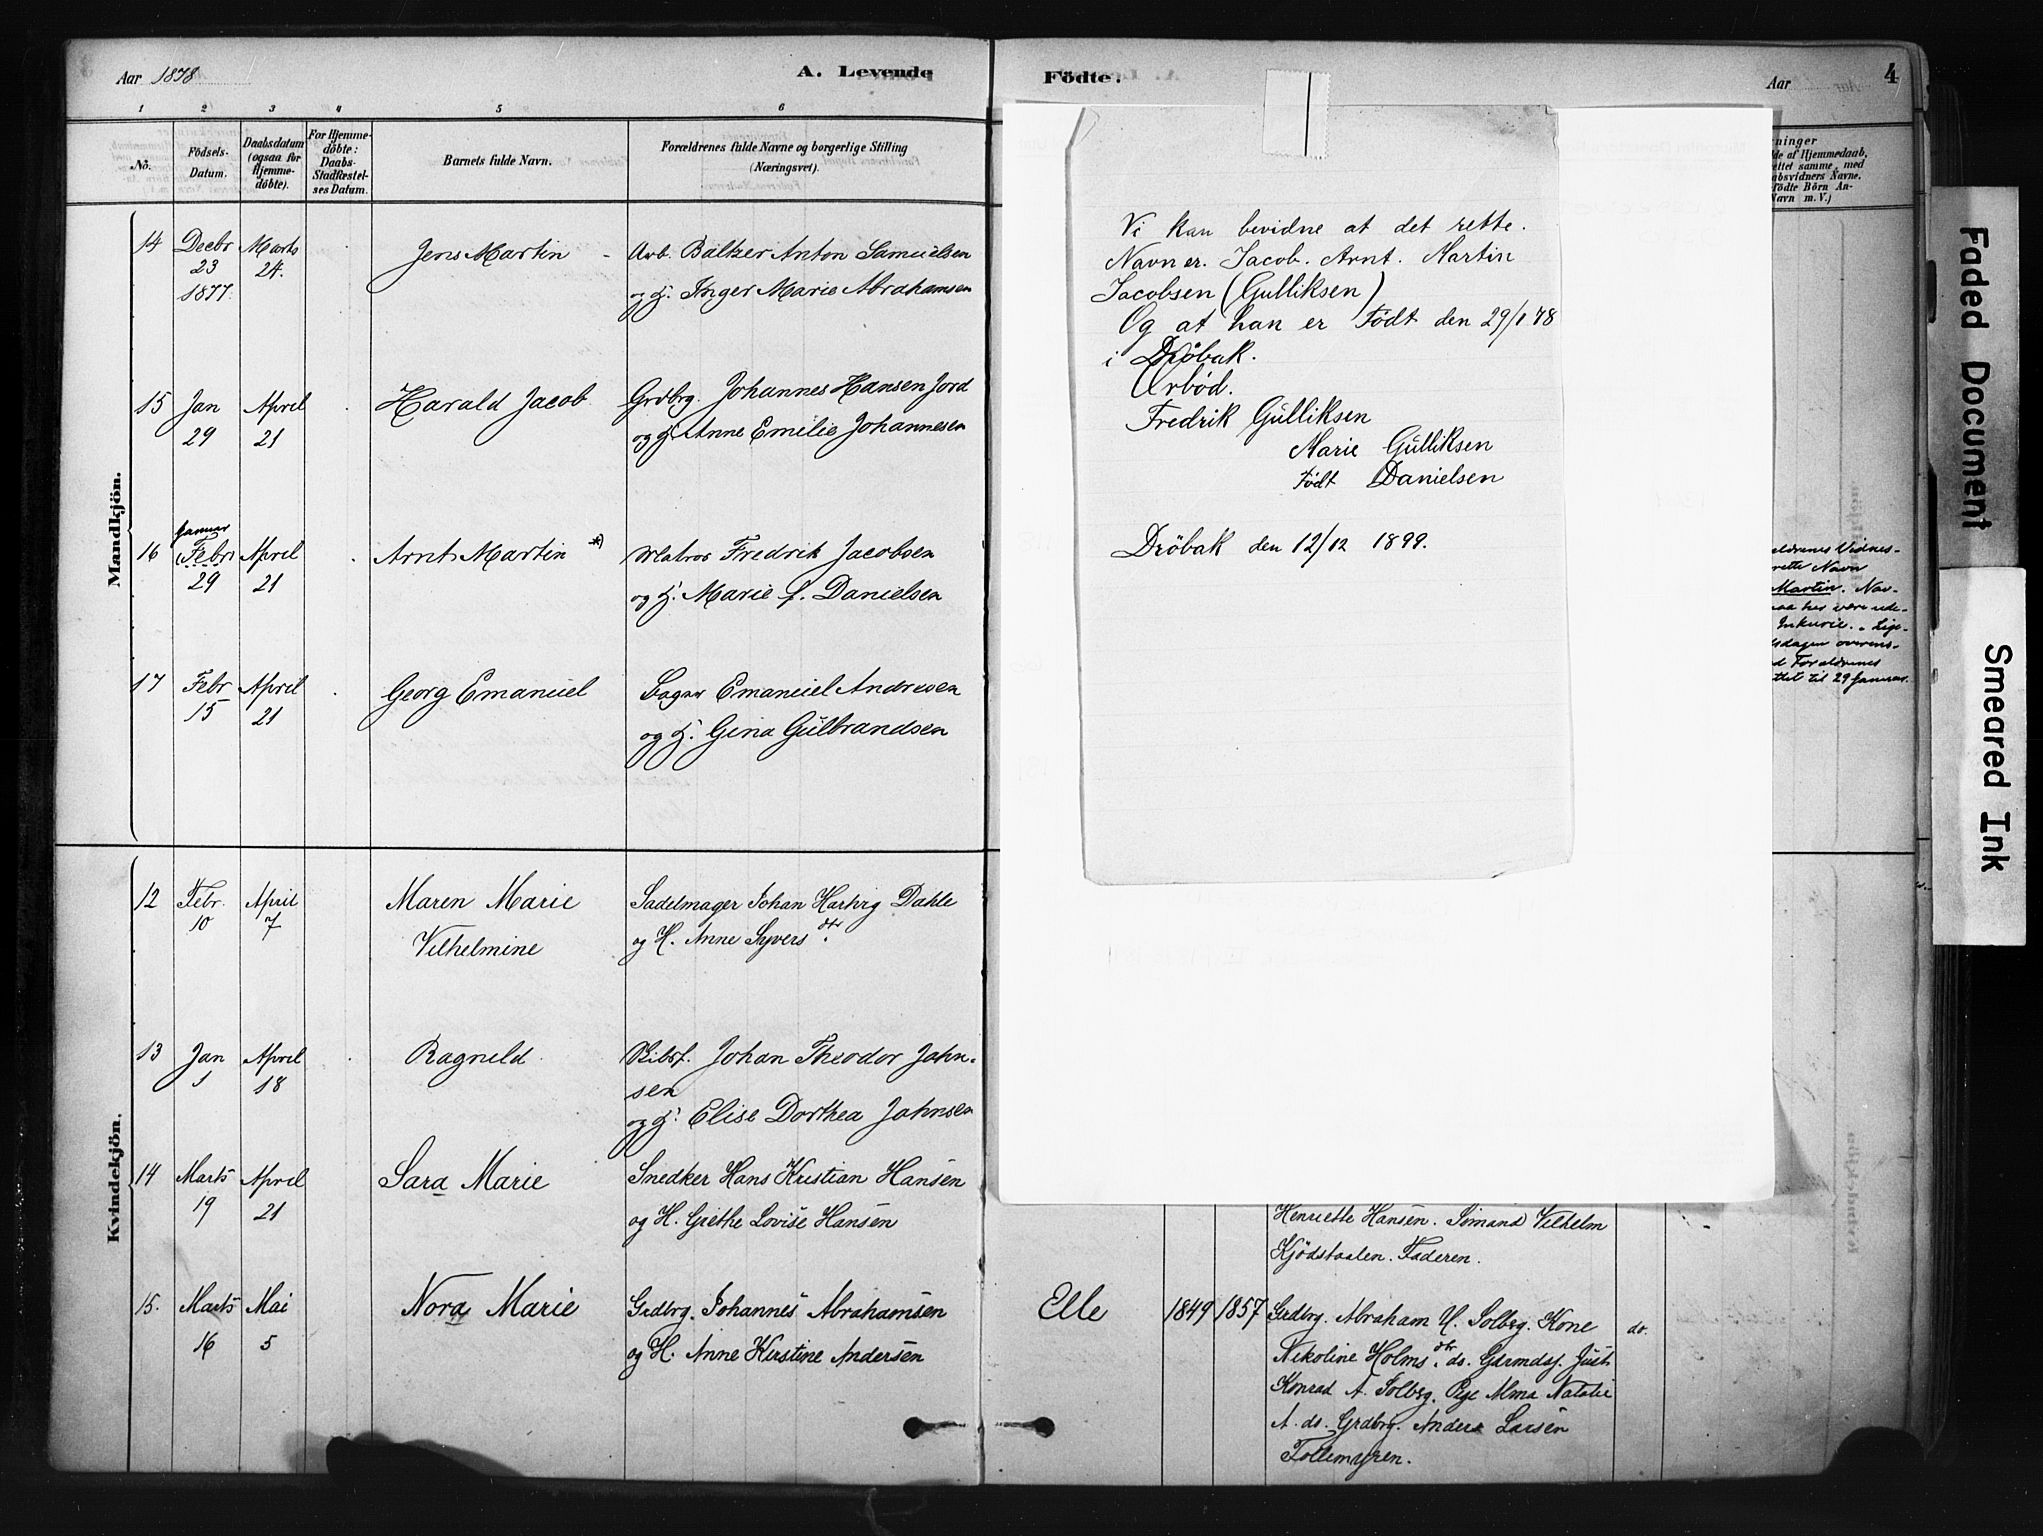 Aar 1878
A. Levende
Födte.
Aar
4
1 2 3 4 5 6
No.
Födsels-
Datum.
Daabsdatum
(ogsaa for
Hjemme-
døbte).
For Hjemme-
døbte:
Daabs-
Stadfæstel-
ses Datum.
Barnets fulde Navn.
Forældrenes fulde Navne og borgerlige Stilling
(Næringsvei).
Mandkjön.
14 Decbr Marts Jens Martin Arb. Baltzer Anton Samuelsen
23 24.
1877. og H. Inger Marie Abrahamsen
15 Jan April Harald Jacob Grdbrg. Johannes Hansen Jord
29 21 og H. Anne Emilie Johannesen
Januar
16 Febr April Arnt Martin *) Matros Fredrik Jacobsen
29 21 og H. Marie f. Danielsen
17 Febr April Georg Emanuel Emanuel Andresen
15 21 og H. Gina Gulbrandsen
Kvindekjön.
12 Febr. April Maren Marie Sadelmager Johan Hartvig Dahle
10 7 Vilhelmine og H. Anne Syversdtr.
13 Jan April Ragnild Johan Theodor John-
1 18 sen
og H. Elise Dorthea Johnsen
14 Marts April Sara Marie Snedker Hans Kristian Hansen
19 21 og H. Grethe Lovise Hansen
15. Marts Mai Nora Marie Grdbrg. Johannes Abrahamsen
16 5 og H. Anne Kirstine Andersen
Vi kan bevidne at det rette.
Navn er. Jacob. Arnt. Martin
Jacobsen (Gulliksen)
Og at han er Født den 29/1 78
i Dröbak.
Ærbød.
Fredrik Gulliksen
Marie Gulliksen
Født Danielsen
Dröbak den 12/12 1899.
ninger
de af Hjemmedaab,
ettet samme, med
absvidners Navne.
födte Börn An-
Navn m. V.)
ældrenes Vidnes-
rette Navn
Martin. Nav-
maa her være ude-
Inkurie. Lige-
sdagen overens-
d Forældrenes
ttet til 29 Januar.
Henriette Hansen. Sømand Vilhelm
Kjødstaalen. Faderen.
Elle 1849 1857 Grdbrg. Abraham U. Solberg. Kone
Nikoline Holmsdtr. ds. Grmdsf. Just do.
Konrad A. Solberg. Pige Alma Natalie
A. ds. Grdbrg. Anders Larsen
Tollemyren.
Faded Document
Smeared Ink